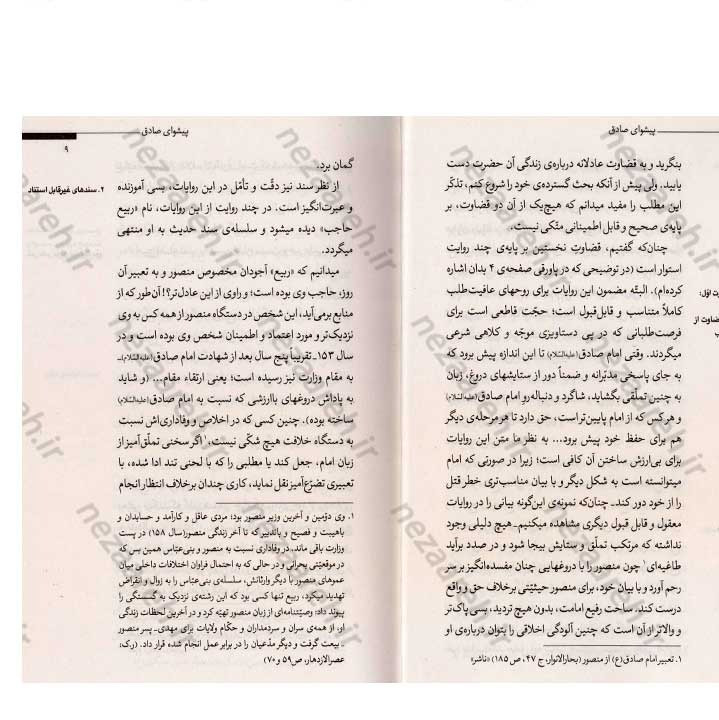 پیشوای صادق
بنگرید و به قضاوت عادلانه درباره‌ی زندگی آن حضرت دست
یابید. ولی پیش از آنکه بحث گسترده‌ی خود را شروع کنم، تذکّر
این مطلب را مفید میدانم که هیچ‌یک از آن دو قضاوت، بر
پایه‌ی صحیح و قابل اطمینانی متّکی نیست.
چنان‌که گفتیم، قضاوتِ نخستین بر پایه‌ی چند روایت
استوار است (در توضیحی که در پاورقی صفحه‌ی ۴ بدان اشاره
کرده‌ام). البتّه مضمون این روایات برای روحهای عافیت‌طلب
کاملاً متناسب و قابل‌قبول است؛ حجّت قاطعی است برای
فرصت‌طلبانی که در پی دستاویزی موجّه و کلاهی شرعی
میگردند. وقتی امام صادق(علیه‌السّلام) تا این اندازه پیش برود که
به جای پاسخی مدبّرانه و ضمناً دور از ستایشهای دروغ، زبان
به چنین تملّقی بگشاید، شاگرد و دنباله‌رو امام صادق(علیه‌السّلام)
و هرکس که از امام پایین‌تر است، حق دارد تا هر مرحله‌ی دیگر
هم برای حفظ خود پیش برود... به نظر ما متن این روایات
برای بی‌ارزش ساختن آن کافی است؛ زیرا در صورتی که امام
میتوانسته است به شکل دیگر و با بیان مناسب‌تری خطر قتل
را از خود دور کند ـ چنان‌که نمونه‌ی این‌گونه بیانی را در روایات
معقول و قابل قبول دیگری مشاهده میکنیم ـ هیچ دلیلی وجود
نداشته که مرتکب تملّق و ستایش بیجا شود و در صدد برآید
طاغیه‌ای۱ چون منصور را با دروغهایی چنان مفسده‌انگیز بر سر
رحم آورد و با بیان خود، برای منصور حیثیّتی برخلاف حق و واقع
درست کند. ساحت رفیع امامت، بدون هیچ تردید، بسی پاک‌تر
و والاتر از آن است که چنین آلودگی اخلاقی را بتوان درباره‌ی او
۱. تعبیر امام صادق(ع) از منصور (بحارالانوار، ج ۴۷، ص ۱۸۵) «ناشر»
پیشوای صادق
۹
گمان برد.
۲. سندهای غیرقابل استناد
از نظر سند نیز دقّت و تأمّل در این روایات، بسی آموزنده
و عبرت‌انگیز است. در چند روایت از این روایات، نام «ربیع
حاجب» دیده میشود و سلسله‌ی سند حدیث به او منتهی
میگردد.
میدانیم که «ربیع» آجودان مخصوص منصور و به تعبیر آن
روز، حاجب وی بوده است؛ و راوی از این عادل‌تر؟! آن‌طور که از
منابع برمی‌آید، این شخص در دستگاه منصور از همه کس به وی
نزدیک‌تر و مورد اعتماد و اطمینان شخص وی بوده است و در
سال ۱۵۳ ـ تقریباً پنج سال بعد از شهادت امام صادق(علیه‌السّلام) ـ
به مقام وزارت نیز رسیده است؛ یعنی ارتقاء مقام... (و شاید
به پاداش دروغهای باارزشی که نسبت به امام صادق(علیه‌السّلام)
ساخته بوده). چنین کسی که در اخلاص و وفاداری‌اش نسبت
به دستگاه خلافت هیچ شکّی نیست،۱ اگر سخنی تملّق‌آمیز از
زبان امام، جعل کند یا مطلبی را که با لحنی تند ادا شده، با
تعبیری تضرّع‌آمیز نقل نماید، کاری چندان برخلاف انتظار انجام
۱. وی دوّمین و آخرین وزیر منصور بود؛ مردی عاقل و کارآمد و حسابدان و
باهیبت و فصیح و باتدبیر که تا آخر زندگی منصور (سال ۱۵۸) در پست
وزارت باقی ماند. در وفاداری نسبت به منصور و بنی‌عبّاس همین بس که
در موقعیّتی بحرانی و در حالی که به احتمال فراوان اختلافات داخلی میان
عموهای منصور با دیگر وارثانش، سلسله‌ی بنی‌عبّاس را به زوال و انقراض
تهدید میکرد، ربیع تنها کسی بود که این رشته‌ی نزدیک به گسستگی را
پیوند داد؛ وصیّتنامه‌ای از زبان منصور تهیّه کرد و در آخرین لحظات زندگی
او، از همه‌ی سران و سردمداران و حکّام ولایات برای مهدی ـ پسر منصور
ـ بیعت گرفت و دیگر مدّعیان را در برابر عمل انجام شده قرار داد. (ر.ک:
عصرالازدهار، ص۵۹ و ۷۰)
nezareh.ir